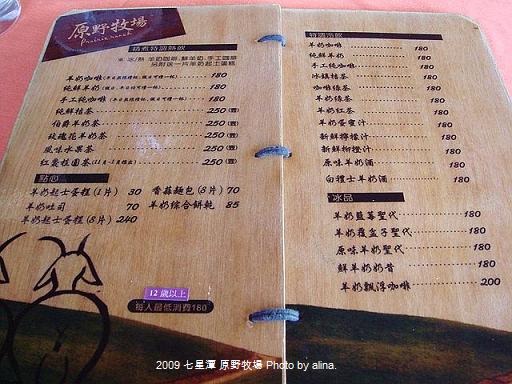 原野牧場
Prairie ranch
精煮特調熱飲
※ 冰/熱 羊奶咖啡.鮮羊奶.手工咖啡
另附送一片羊奶起士蛋糕
羊奶咖啡 180
純鮮羊奶 180
手工純咖啡 180
純鮮桔茶 250(壺)
伯爵羊奶茶 250(壺)
玫瑰花羊奶茶 250(壺)
風味水果茶 250(壺)
紅棗桂圓茶 250(壺)
點心
羊奶起士蛋糕(1片) 30 香蒜麵包(8片) 70
羊奶吐司 70 羊奶綜合餅乾 85
羊奶起士蛋糕(8片) 240
12歲以上
每人最低消費180
特調冷飲
羊奶咖啡 180
純鮮羊奶 180
手工純咖啡 180
冰鎮桔茶 180
咖啡綠茶 180
羊奶綠茶 180
羊奶紅茶 180
羊奶蛋蜜汁 180
新鮮檸檬汁 180
新鮮柳橙汁 180
原味羊奶酒 180
白禮士羊奶酒 180
冰品
羊奶藍莓聖代 180
羊奶覆盆子聖代 180
原味羊奶聖代 180
鮮羊奶奶昔 180
羊奶飄浮咖啡 200
2009 七星潭 原野牧場 Photo by alina.